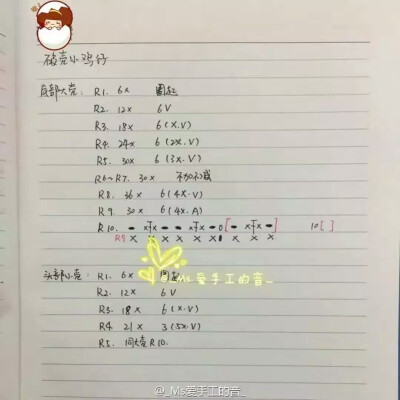 破壳小鸡仔
底部大壳: R1. 6x 圈起
R2. 12x 6V
R3. 18x 6(x.V)
R4. 24x 6(2x.V)
R5. 30x 6(3x.V)
R6~R7. 30x 不加不减
R8. 36x 6(4x.V)
R9. 30x 6(4x.A)
R10.
10[ ]
R9 x x x x x x x x x x
头部小壳: R1. 6x 圈起
R2. 12x 6V
R3. 18x 6(x.V)
R4. 21x 3(5x.V)
R5. 同大壳R10.
@_Ms爱手工的音_
@_Ms爱手工的音_